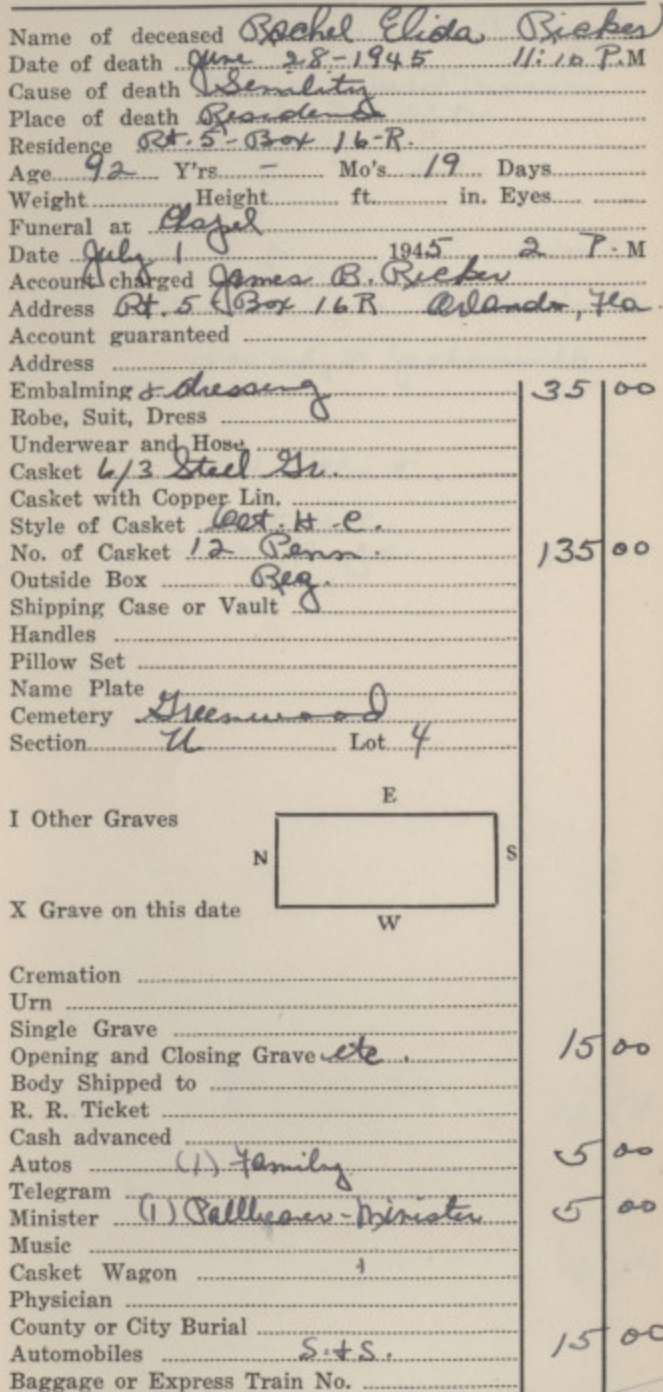 Name of deceased Rachel Elida Ricker
Date of death June 28-1945 11:10 P.M
Cause of death Senility
Place of death Residence
Residence Rt. 5-Box 16-R.
Age 92 Y'rs - Mo's 19 Days
Weight Height ft. in. Eyes
Funeral at Chapel
Date July 1 1945 2 P.M
Account charged James B. Ricker
Address Rt. 5 Box 16R Orlando, Fla.
Account guaranteed
Address
Embalming & dressing 35 00
Robe, Suit, Dress
Underwear and Hose
Casket 6/3 Steel Gr.
Casket with Copper Lin.
Style of Casket Oct. H-C.
No. of Casket 12 Penn. 135 00
Outside Box Reg.
Shipping Case or Vault
Handles
Pillow Set
Name Plate
Cemetery Greenwood
Section U Lot 4
E
I Other Graves
N S
X Grave on this date
W
Cremation
Urn
Single Grave
Opening and Closing Grave etc. 15 00
Body Shipped to
R. R. Ticket
Cash advanced
Autos (1) Family 5 00
Telegram
Minister (1) Pallbearer-Minister 5 00
Music
Casket Wagon
Physician
County or City Burial
Automobiles S. & S. 15 00
Baggage or Express Train No.